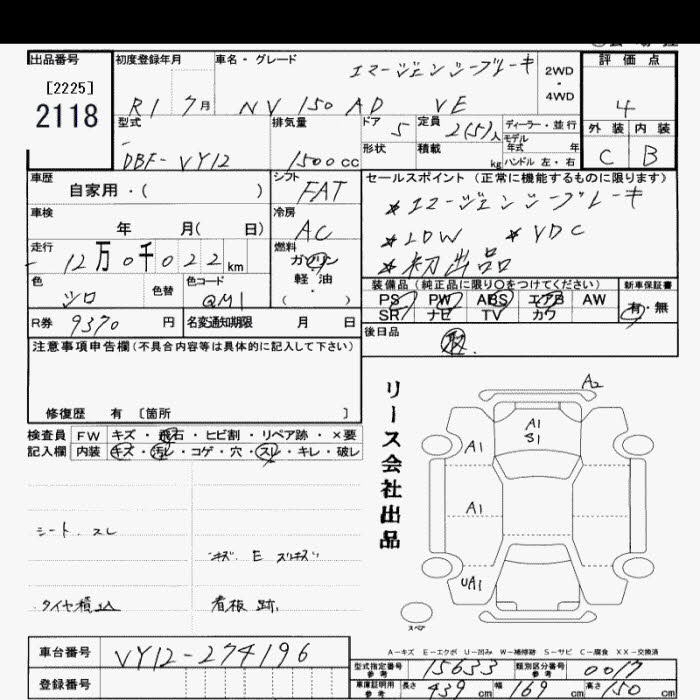 出品番号
[2225]
2118
初度登録年月
R1 7月
車名・グレード
エマージェンシーブレーキ
NV 150 AD VE
2WD
・
4WD
評価点
4
外装 内装
C B
型式
DBF-VY12
排気量
1500cc
ドア 5
定員 2(5)人
ディーラー・並行
モデル年式 年
形状
積載 kg
ハンドル 左・右
車歴
自家用・( )
シフト
FAT
セールスポイント(正常に機能するものに限ります)
＊エマージェンシーブレーキ
＊LDW ＊VDC
＊初出品
車検
年 月( 日)
冷房
AC
走行
12万0千022km
燃料
ガソリン
軽油
・( )
色
シロ
色替
色コード
QM1
装備品(純正品に限り○をつけてください)
新車保証書
PS PW ABS エアB AW
SR ナビ TV カワ
有・無
R券 9370円
名変通知期限 月 日
後日品
取
注意事項申告欄(不具合内容等は具体的に記入して下さい)
修復歴 有 〔箇所 〕
検査員 FW キズ・飛石・ヒビ割・リペア跡・×要
記入欄 内装 キズ・汚レ・コゲ・穴・スレ・キレ・破レ
シート、スレ
キズ E スリキズ
タイヤ積込 看板跡
リース会社出品
A2
A1
S1
A1
A1
UA1
スペア
A－キズ E－エクボ U－凹み W－補修跡 S－サビ C－腐食 XX－交換済
車台番号 VY12-274196
登録番号
型式指定番号 参考 15633
類別区分番号 参考 0017
車庫証明用 参考 長さ 439cm 幅 169cm 高さ 150cm